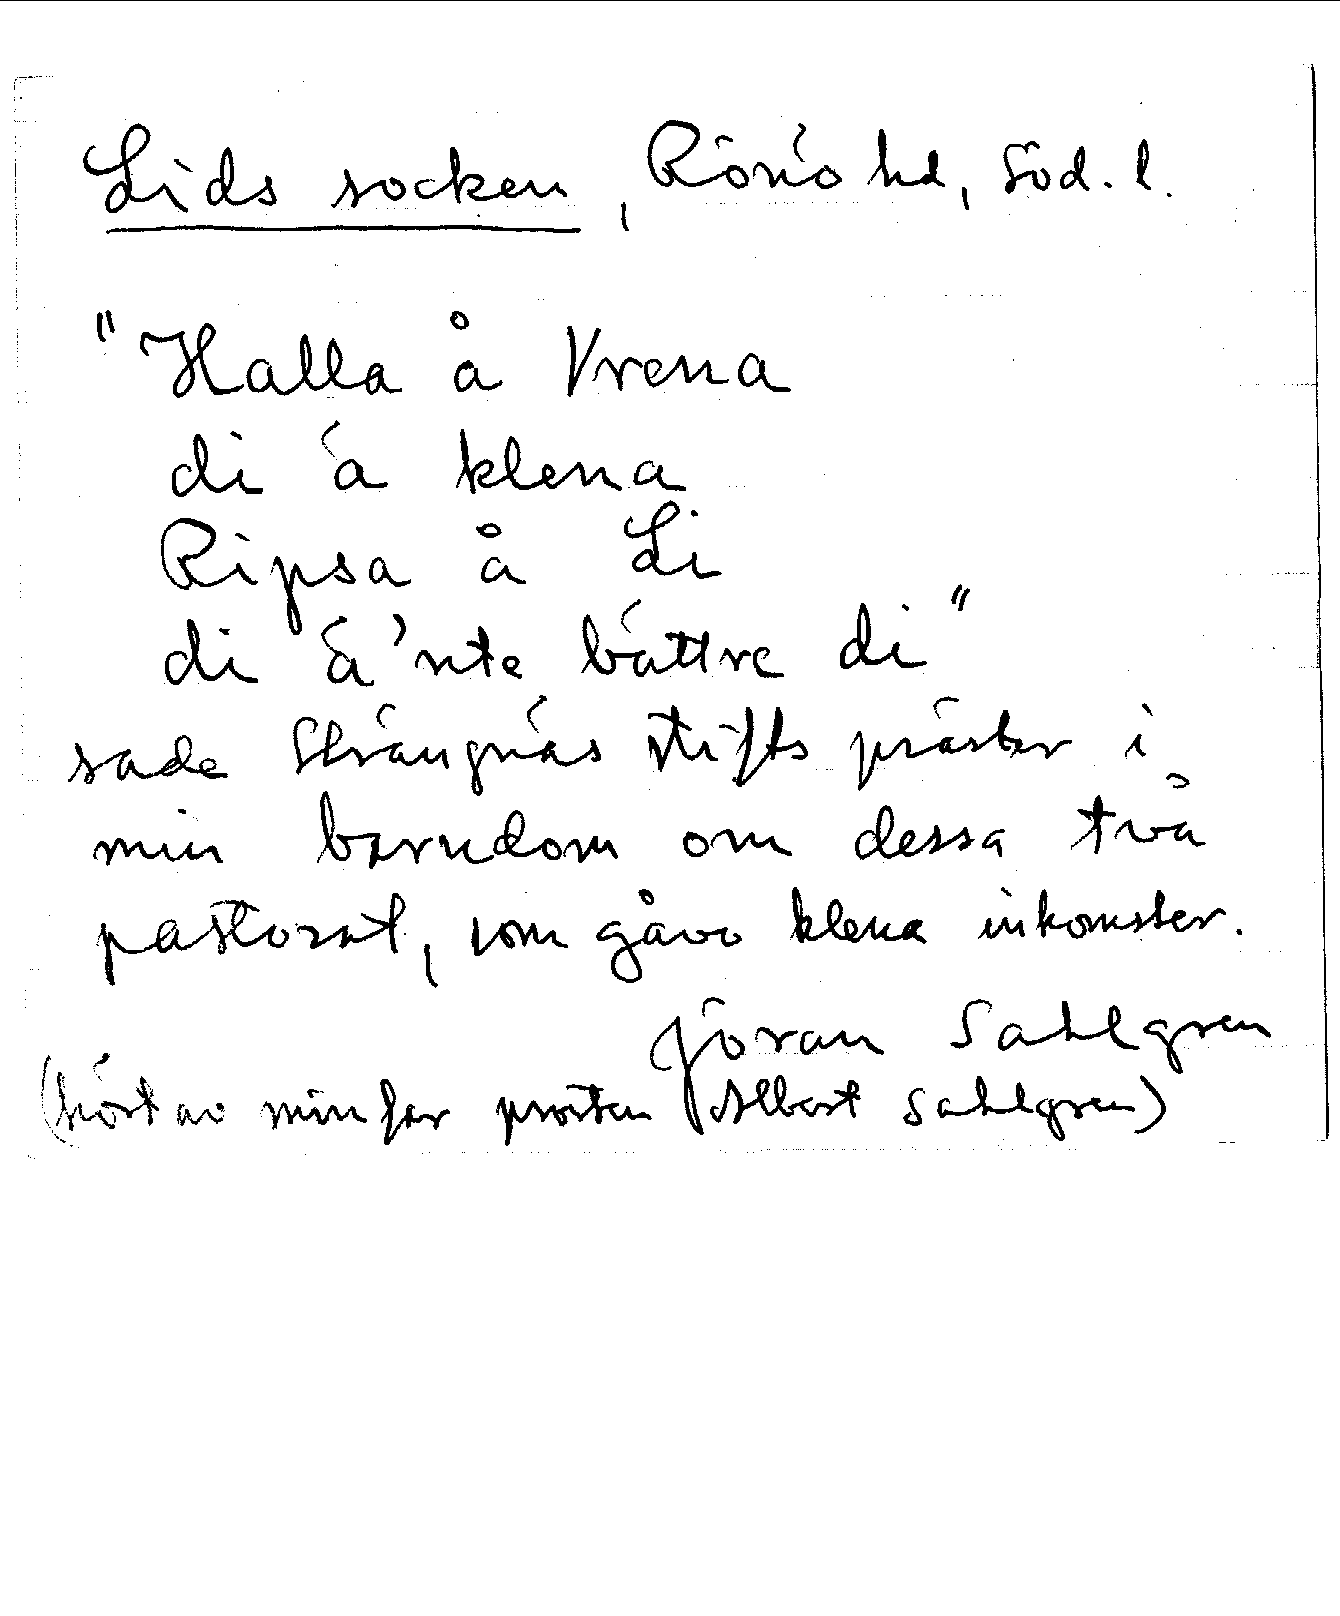 Lids socken, Rönö hd, Söd. l.
"Halla å Vrena
di ä klena
Ripsa å Li
di ä'nte bättre di"
sade Strängnäs stifts präster i
min barndom om dessa två
pastorat, som gåvo klena inkomster.
Jöran Sahlgren
(hört av min far prosten Albert Sahlgren)